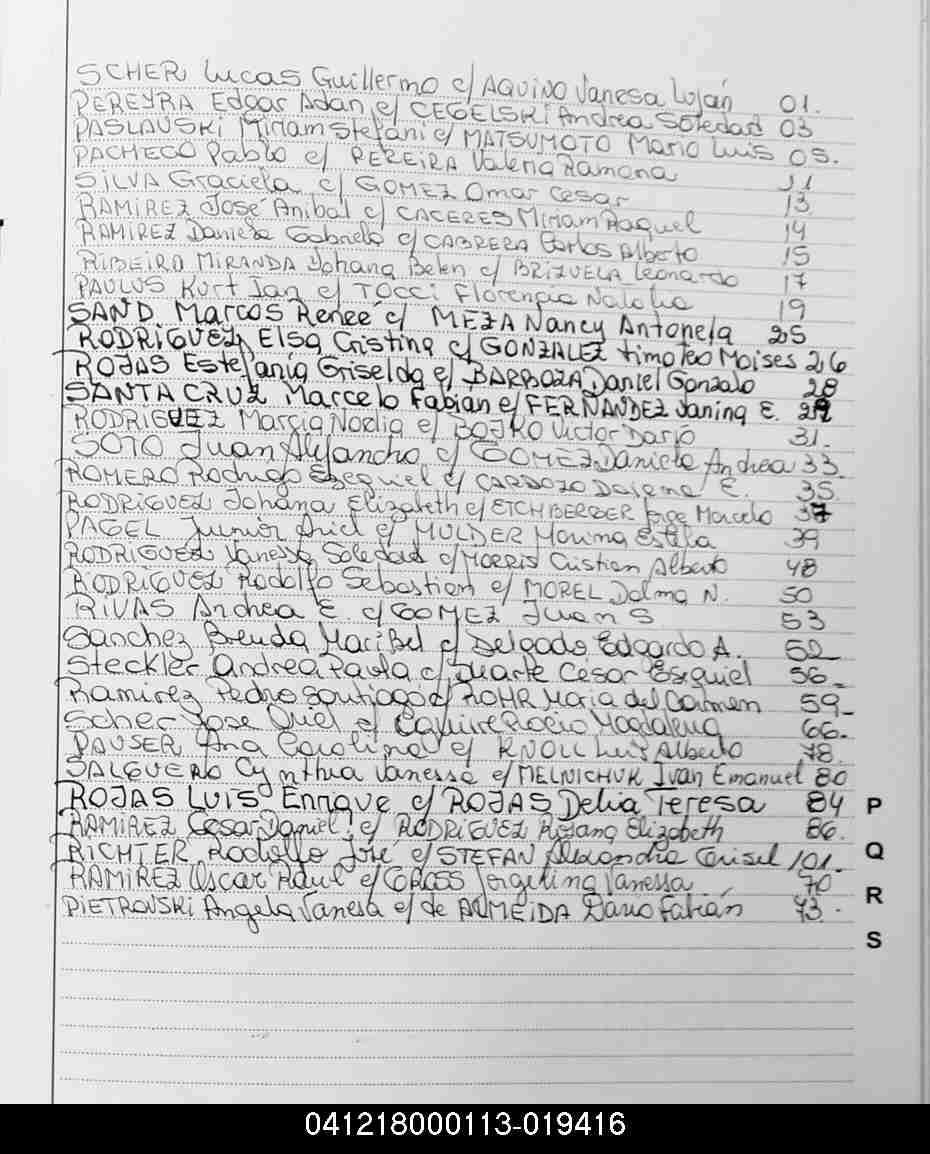 SCHER Lucas Guillermo c/ AQUINO Vanesa Luján 01.
PEREYRA Edgar Adan c/ CEGELSKI Andrea Soledad 03
PASLAUSKI Miriam Stefani c/ MATSUMOTO Mario Luis 05.
PACHECO Pablo c/ PEREIRA Valeria Ramona 11
SILVA Graciela c/ GOMEZ Omar Cesar 13
RAMIREZ José Anibal c/ CACERES Miriam Raquel 14
RAMIREZ Daniela Gabriela c/ CABRERA Carlos Alberto 15
RIBEIRO MIRANDA Johana Belen c/ BRIZUELA Leonardo 17
PAULUS Kurt Jan c/ TOCCI Florencia Natalia 19
SAND Marcos Reneé c/ MEZA Nancy Antonela 25
RODRIGUEZ Elsa Cristina c/ GONZALEZ timoteo Moises 26
ROJAS Estefania Griselda c/ BARBOZA Daniel Gonzalo 28
SANTA CRUZ Marcelo Fabian c/ FERNANDEZ Janina E. 29
RODRIGUEZ Marcia Noelia c/ BOJKO Victor Darío 31.
SOTO Juan Alejandro c/ GOMEZ Daniela Andrea 33
ROMERO Rodrigo Ezequiel c/ CARDOZO E. 35
RODRIGUEZ Johana Elizabeth c/ EICHBERGER Jorge Marcelo 37
PAGEL Junior Ariel c/ MULDER Marina Estela 39
RODRIGUEZ Vanessa Soledad c/ MORRIS Cristian Alberto 48
RODRIGUEZ Rodolfo Sebastian c/ MOREL Dalma N. 50
RIVAS Andrea E. c/ GOMEZ Juan S. 53
Sanchez Brenda MariBel c/ Delgado Edgardo A. 52
Steckler Andrea Paola c/ Duarte César Ezequiel 56
Ramirez Pedro Santiago c/ ROHR Maria del Carmen 59
Scher Jose Uriel c/ Rocio Magdalena 66.
PAUSER Ana Carolina c/ KNOLL Luis Alberto 78.
SALGUERO Cynthia Vanessa c/ MELNICHUK Ivan Emanuel 80
ROJAS LUIS Enrique c/ ROJAS Delia Teresa 84 P
RAMIREZ Cesar Daniel c/ RODRIGUEZ Elizabeth 86.
RICHTER Rodolfo José c/ STEFAN Alexandra 101. Q
RAMIREZ Oscar Raul c/ GROSS Jorgelina Vanessa 70
PIETROVSKI Angela Vanesa c/ de ALMEIDA Dario Fabián 73. R
S
041218000113-019416